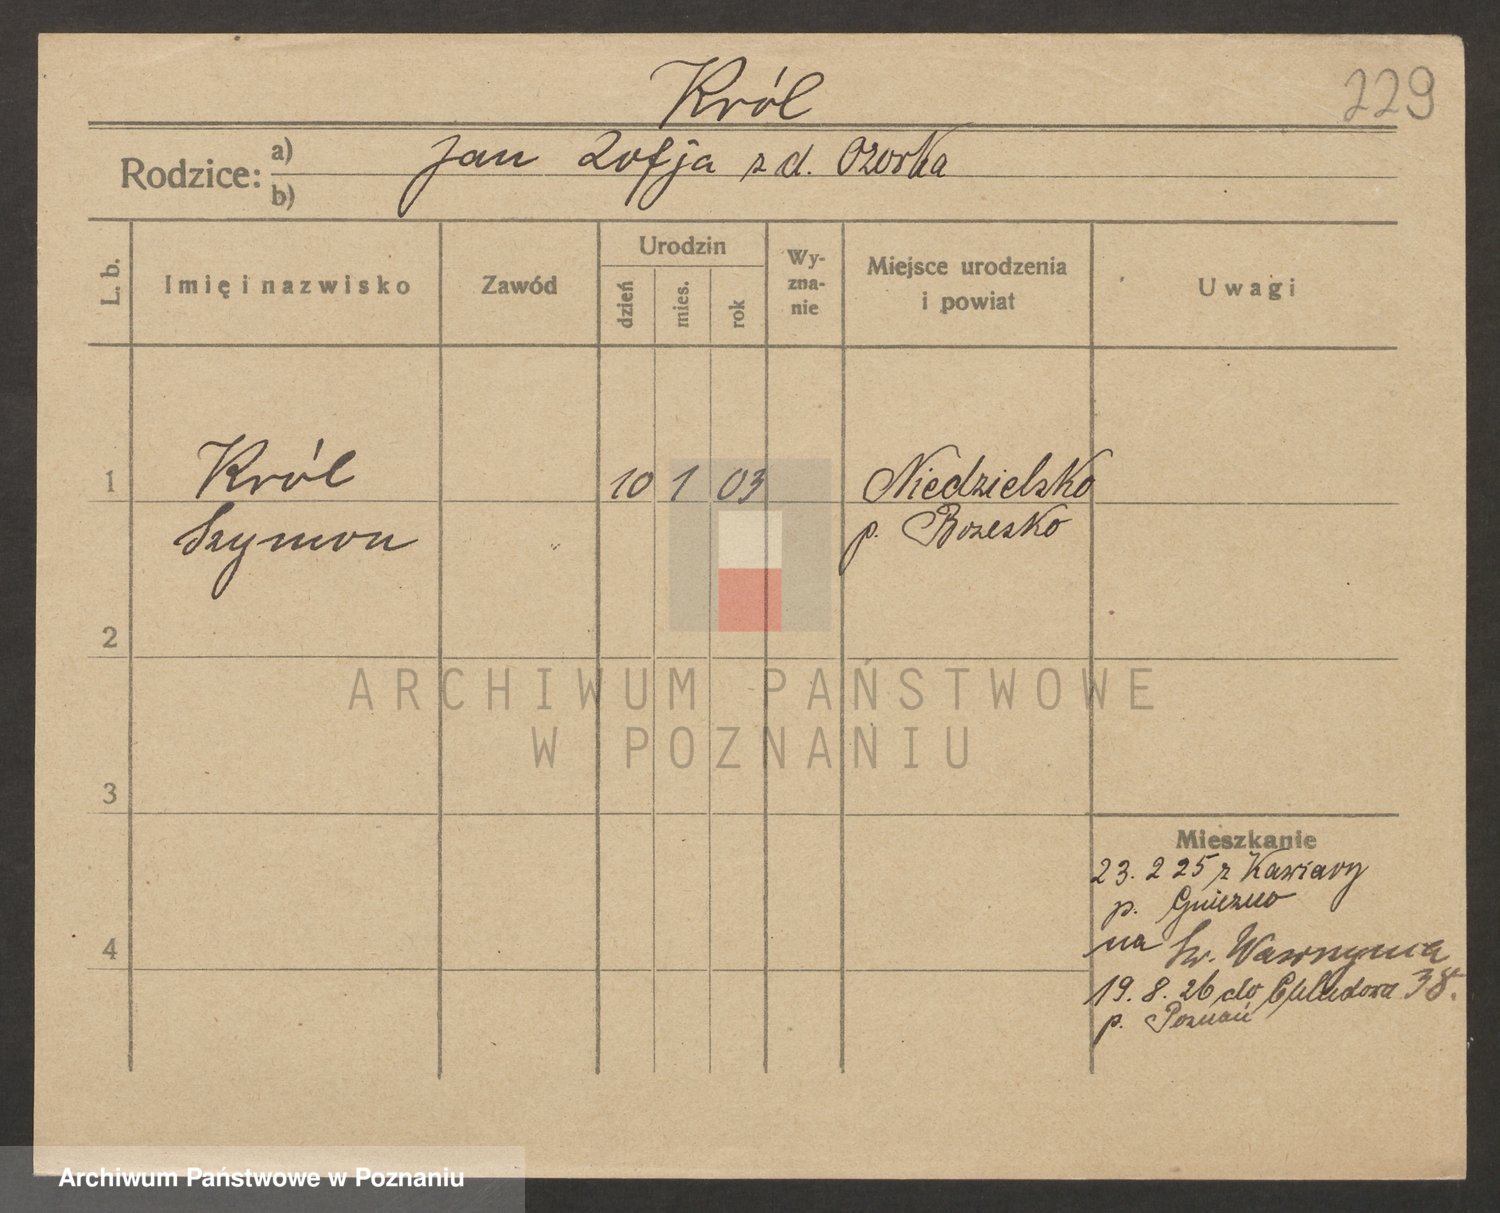 Król
229
Rodzice: a)
Jan Zofja z d. Ozorka
b)
L. b.
Imię i nazwisko
Zawód
Urodzin
dzień
mies.
rok
Wy-
zna-
nie
Miejsce urodzenia
i powiat
Uwagi
1
Król
10 1 03
Niedzielsko
Szymon
p. Brzesko
2
ARCHIWUM PAŃSTWOWE
W POZNANIU
3
Mieszkanie
23. 2 25 z Kawiary
p. Gniezno
4
na Św. Wawrzyńca
38.
19. 8. 26 do
p. Poznań
Archiwum Państwowe w Poznaniu